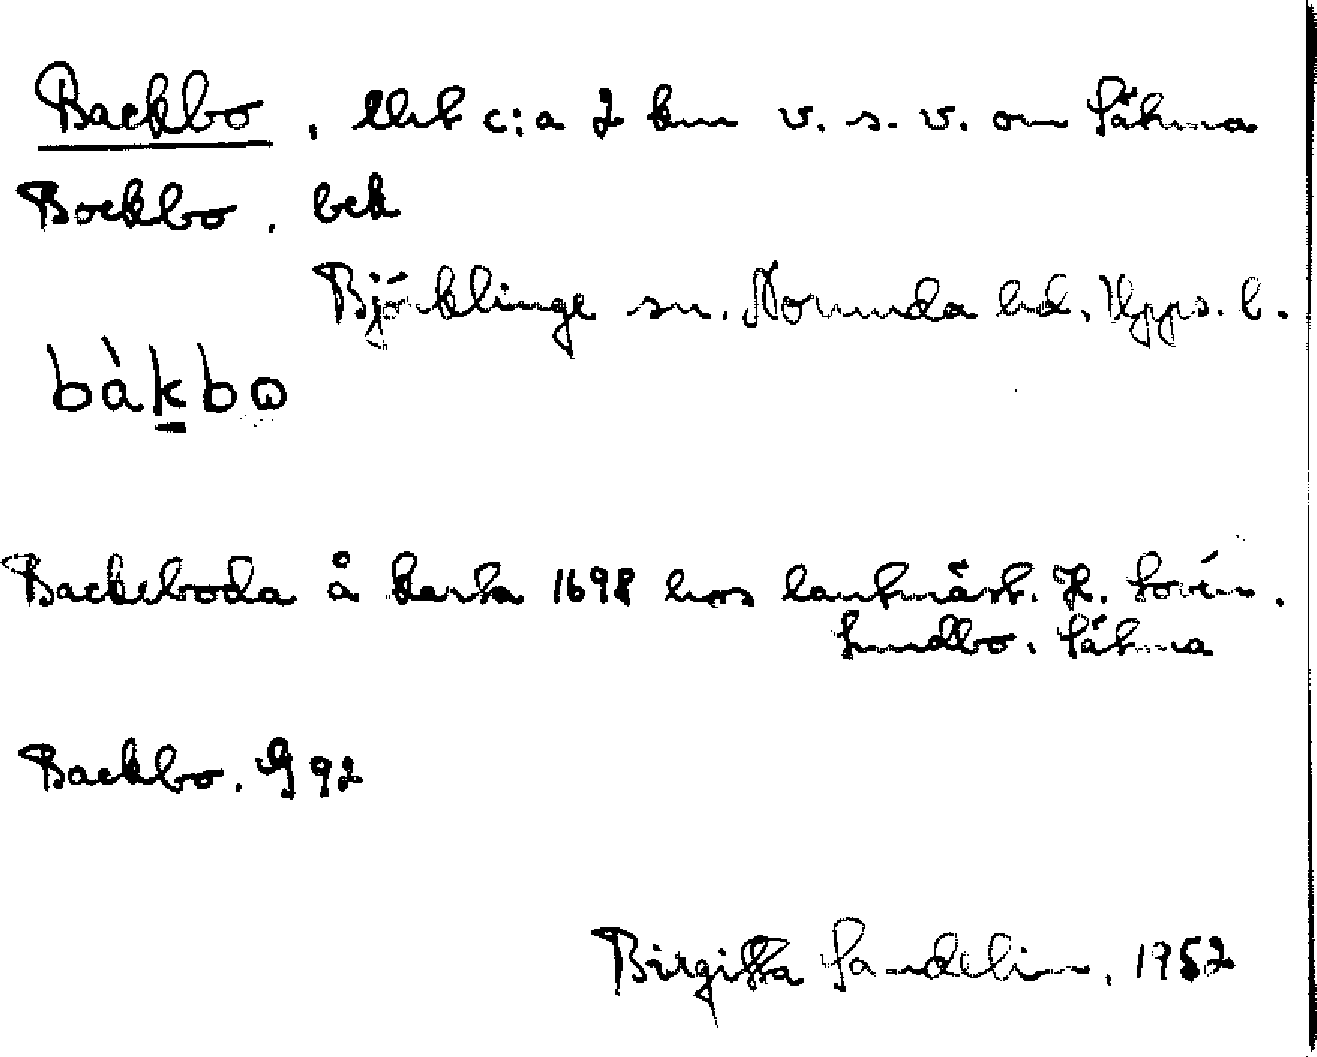 Backbo, Ebl c:a 2 km v. s. v. om Sätuna
Bockbo, bek
Björklinge sn. Norunda hd, Upps. l.
bàk̠bo
Backeboda å karta 1698 hos lantmäst. H. Lovén.
Lundbo. Sätuna
Backbo. G 92
Birgitta Sandelin, 1952